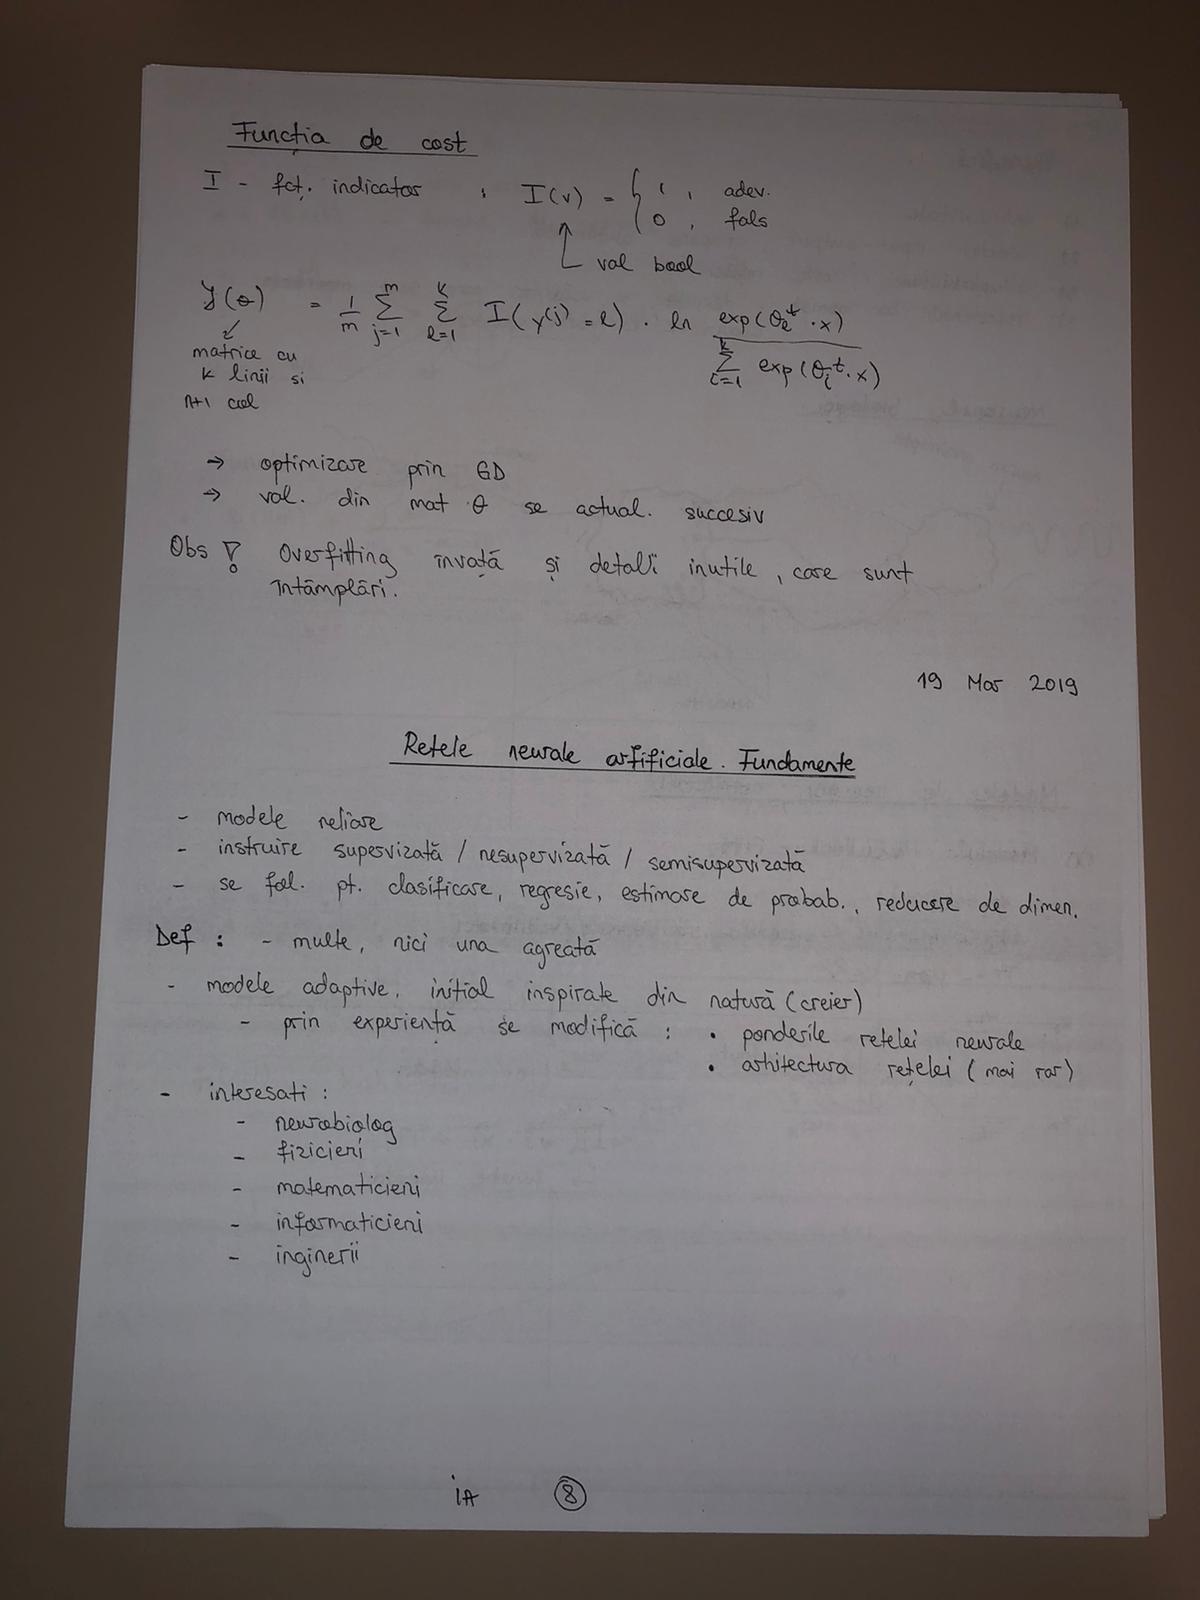 Funcția de cost
I - fcț. indicator : I(v) = { 1, adev.
0, fals
val bool
J(θ) = 1/m ∑_{j=1}^{m} ∑_{l=1}^{k} I(y^{(j)} = l) · ln exp(θ_l^t · x) / ∑_{i=1}^{k} exp(θ_i^t · x)
matrice cu
k linii si
n+1 col
→ optimizare prin GD
→ val. din mat θ se actual. succesiv
Obs ! Overfitting învață și detalii inutile, care sunt
întâmplări.
19 Mar 2019
Retele neurale artificiale. Fundamente
- modele neliare
- instruire supervizată / nesupervizată / semisupervizată
- se fol. pt. clasificare, regresie, estimare de probab., reducere de dimen.
Def : - multe, nici una agreată
- modele adaptive, initial inspirate din natură (creier)
- prin experiență se modifică : • ponderile retelei neurale
• arhitectura rețelei (mai rar)
- interesati :
- neurobiolog
- fizicieni
- matematicieni
- informaticieni
- inginerii
iA 8